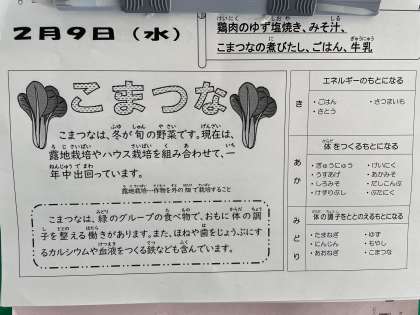 2月9日（水）
鶏肉のゆず塩焼き、みそ汁、
こまつなの煮びたし、ごはん、牛乳
こまつな
こまつなは、冬が旬の野菜です。現在は、
露地栽培やハウス栽培を組み合わせて、一
年中出回っています。
露地栽培…作物を外の畑で栽培すること
こまつなは、緑のグループの食べ物で、おもに体の調
子を整える働きがあります。また、ほねや歯をじょうぶにす
るカルシウムや血液をつくる鉄なども含んでいます。
エネルギーのもとになる
き
・ごはん ・さつまいも
・さとう
体をつくるもとになる
あか
・ぎゅうにゅう ・けいにく
・うすあげ ・あかみそ
・しろみそ ・だしこんぶ
・けずりぶし ・ぶたにく
体の調子をととのえるもとになる
みどり
・たまねぎ ・ゆず
・にんじん ・もやし
・あおねぎ ・こまつな